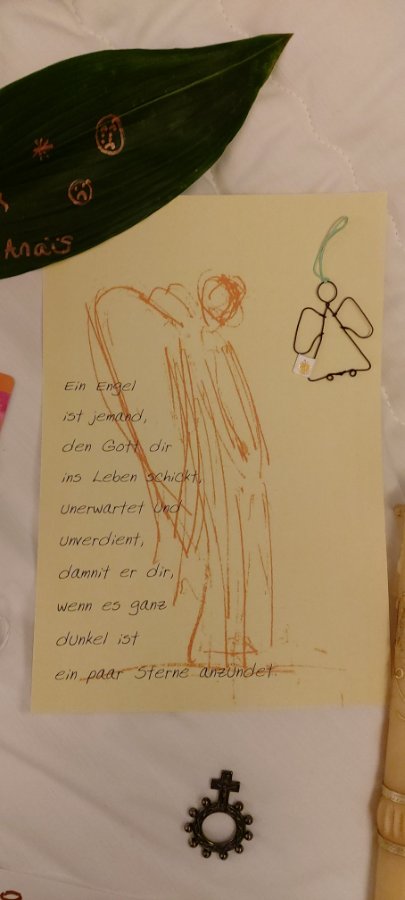 Anaïs
Ein Engel
ist jemand,
den Gott dir
ins Leben schickt,
unerwartet und
unverdient,
damnit er dir,
wenn es ganz
dunkel ist
ein paar Sterne anzündet.